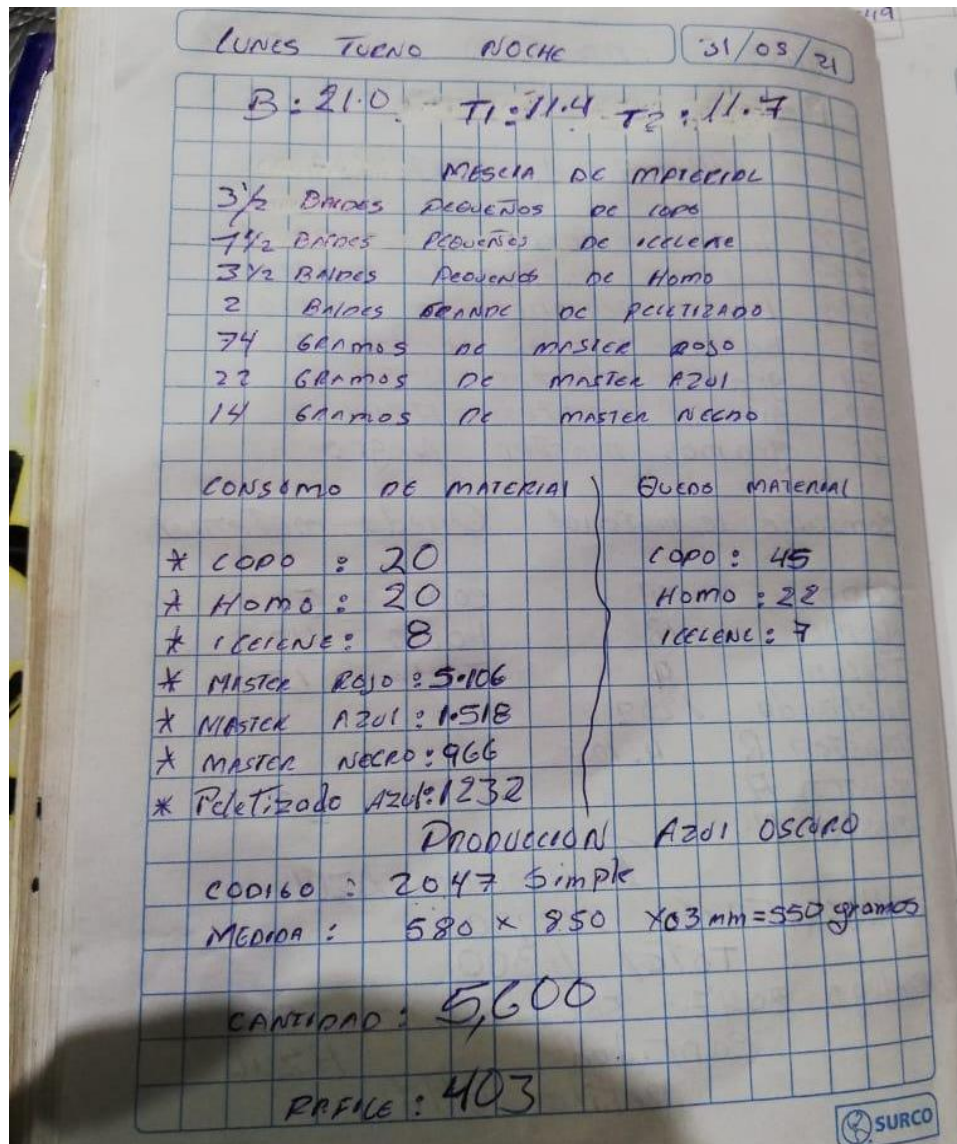 LUNES TURNO NOCHE 31/05/21
B: 21.0 T1: 11.4 T2: 11.7
MESCLA DE MATERIAL
3 1/2 BALDES PEQUEÑOS DE COPO
7 1/2 BALDES PEQUEÑOS DE ICELENE
3 1/2 BALDES PEQUENOS DE HOMO
2 BALDES GRANDE DE PELETIZADO
74 GRAMOS DE MASTER ROJO
22 GRAMOS DE MASTER AZUL
14 GRAMOS DE MASTER NEGRO
CONSUMO DE MATERIAL QUEDO MATERIAL
* COPO : 20 COPO : 45
* HOMO : 20 HOMO : 22
* ICELENE : 8 ICELENE : 7
* MASTER ROJO : 5.106
* MASTER AZUL : 1.518
* MASTER NEGRO : 966
* Peletizado AZUL: 1232
PRODUCCION AZUL OSCURO
CODIGO : 2047 Simple
MEDIDA : 580 x 850 x03 mm = 550 gramos
CANTIDAD : 5,600
REFILE : 403
SURCO